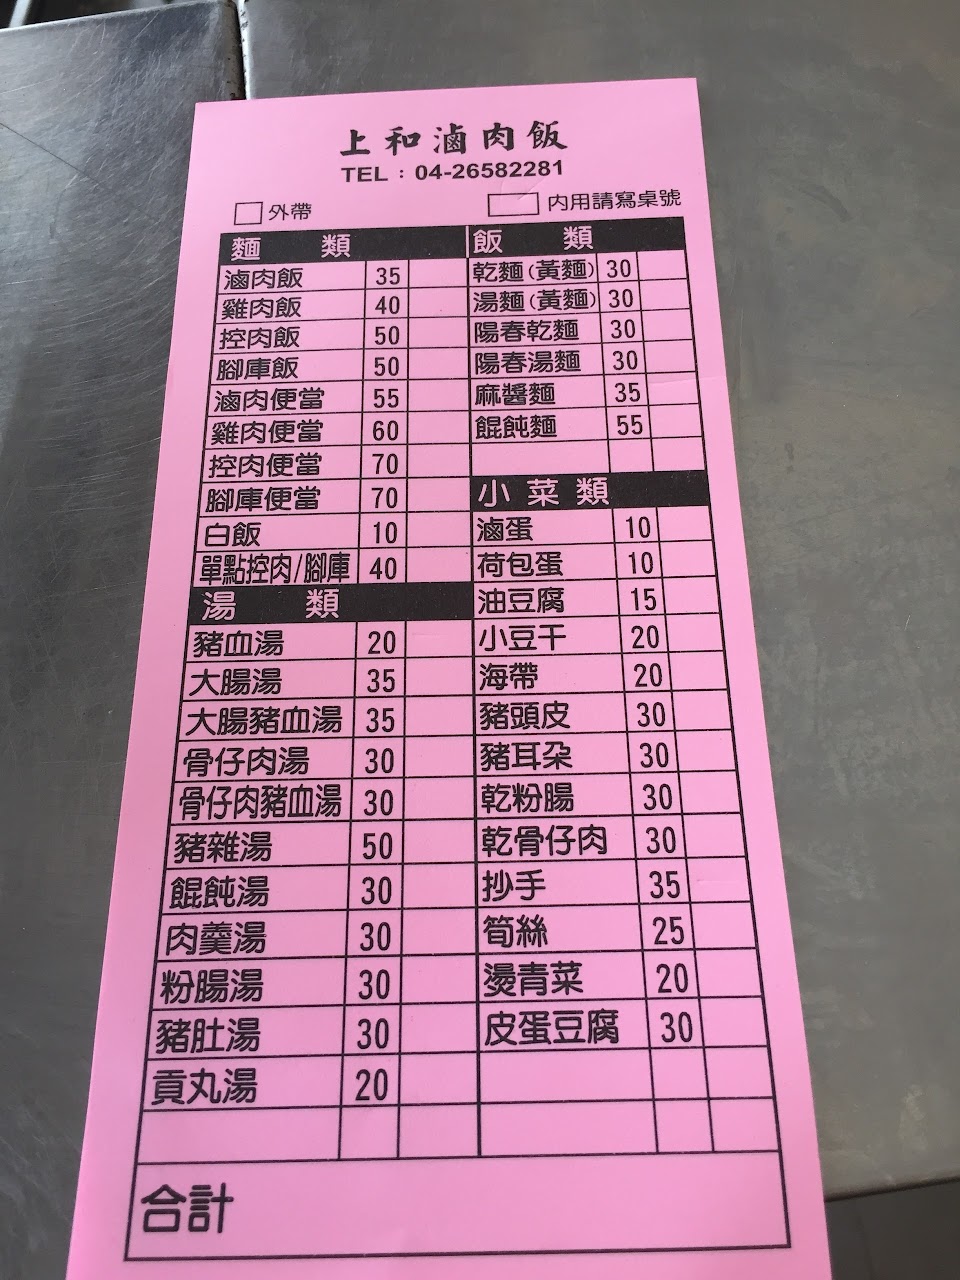 上和滷肉飯
TEL：04-26582281
外帶
內用請寫桌號
麵 類
滷肉飯 35
雞肉飯 40
控肉飯 50
腳庫飯 50
滷肉便當 55
雞肉便當 60
控肉便當 70
腳庫便當 70
白飯 10
單點控肉/腳庫 40
湯 類
豬血湯 20
大腸湯 35
大腸豬血湯 35
骨仔肉湯 30
骨仔肉豬血湯 30
豬雜湯 50
餛飩湯 30
肉羹湯 30
粉腸湯 30
豬肚湯 30
貢丸湯 20
飯 類
乾麵(黃麵) 30
湯麵(黃麵) 30
陽春乾麵 30
陽春湯麵 30
麻醬麵 35
餛飩麵 55
小菜類
滷蛋 10
荷包蛋 10
油豆腐 15
小豆干 20
海帶 20
豬頭皮 30
豬耳朵 30
乾粉腸 30
乾骨仔肉 30
抄手 35
筍絲 25
燙青菜 20
皮蛋豆腐 30
合計